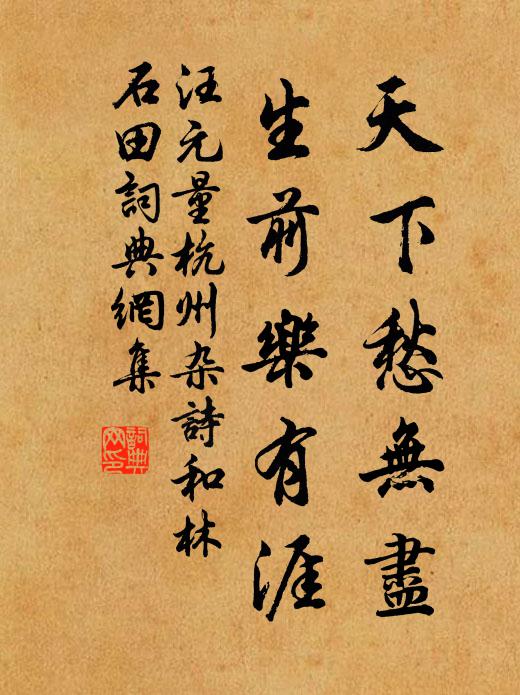 天下愁無盡
生前樂有涯
汪元量杭州杂詩和林
石田詞典網集
詞典
网印